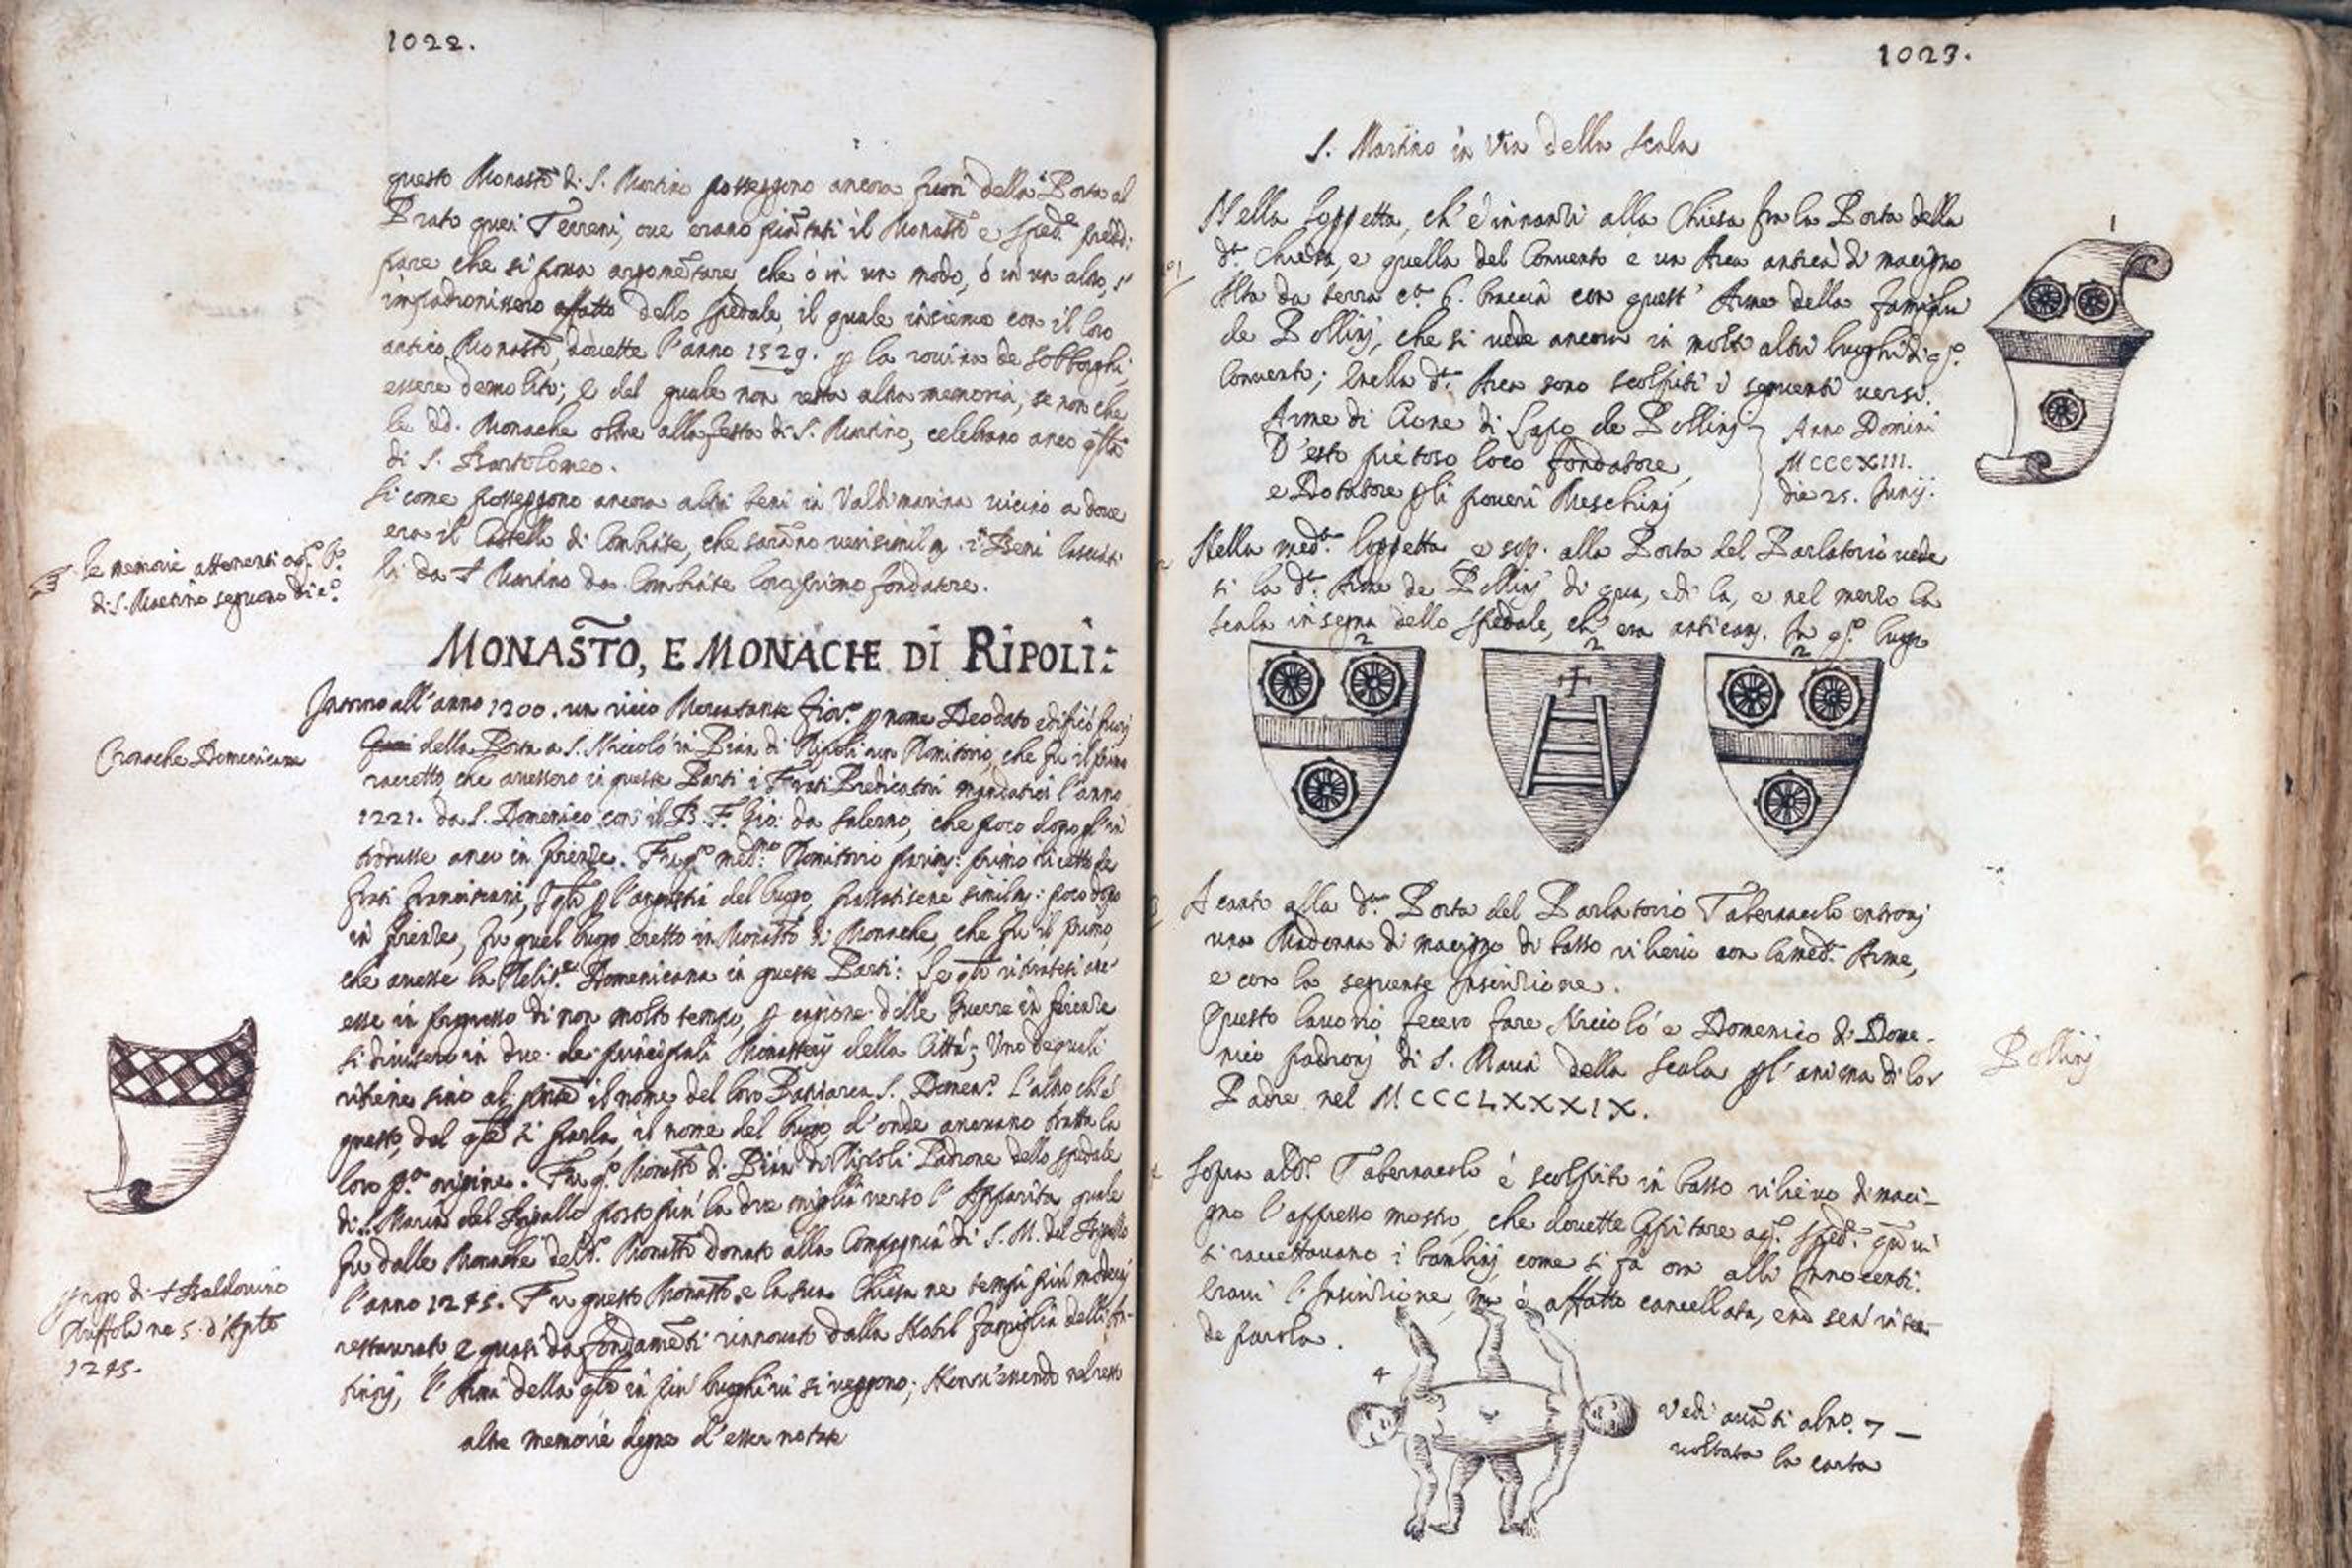 1022.
questo Monast.º di S. Martino posseggono ancora fuori della Porta al
Prato quei Terreni, ove erano piãtati il Monast.º e sped.e
pare che si possa argomẽtare che ò in un modo, ò in un altro, s'
impadronissero affatto dello Spedale, il quale insieme con il loro
antico Monast.º, dovette l'anno 1529. p la rovina de Sobborghi
essere demolito; e del quale non resta altra memoria, se non che
le dd. Monache oltre alla festa di S. Martino, celebrano anco
di S. Bartolomeo.
Si come posseggono ancora altri beni in Valdimarina vicino a dove
era il Castello di Combiate, che sarãno i Beni lasciati
li da S Martino da Combiate loro primo fondatore.
le memorie attenenti
di S. Martino seguono di
MONASTO, E MONACHE DI RIPOLI:
Intorno all'anno 1200. un ricco Mercatante Fior.º p nome Deodato edificò fuori
della Porta a S. Niccolò in Pian di Ripoli un Romitorio, che fu il primo
Cronache Domenicane
raccetto che avessero in queste Parti i Frati Predicatori mandatici l'anno
1221. da S. Domenico con il B. F. Gio: da Salerno, che poco dopo
trodusse anco in Firenze. Romitorio primo ricetto de
frati l'angustia del luogo, poco dopo
in Firenze, fu quel luogo eretto in Monast.º di Monache, che fu il primo,
che avesse la Relig.e Domenicana in queste Parti: ritiratesi
esse in progresso di non molto tempo, p cagione delle Guerre in Firenze
si divisero in due de principali Monasterij della Città; Uno de quali
ritiene sino al il nome del loro Patriarca S. Domen.º L'altro ch'è
questo, del si parla, il nome del luogo, d'onde avevano tratta la
loro p.a origine. Fu Monast.º di Pian di Ripoli Padrone dello spedale
di S. Maria del Bigallo posto più la due miglia verso l'Apparita, quale
fu dalle Monache del d.º Monast.º donato alla Compagnia di S. M. del Bigallo
l'anno 1245. Fu questo Monast.º e la sua Chiesa ne tempi più moderni
rogo di Baldovino
Riffoli ne 5. d'Agto
1245.
restaurato e quasi da fondamẽti rinnovato dalla Nobil famiglia delli An-
tinorj, l'Arme della in più luoghi vi si veggono; Non v'essendo nel resto
altre memorie degne d'esser notate
1023.
S. Martino in Via della Scala
Nella loggetta, ch'è innanzi alla Chiesa fra la Porta della
d.ª Chiesa, e quella del Convento è un Arca antica di macigno
alta da terra c.a 6. braccia con quest' Arme della famiglia
de Pollinj, che si vede ancora in molti altri luoghi di q.º
Convento; Nella d.ª Arca sono scolpiti i seguenti versi.
Arme di Cione di Lapo de Pollinj
D'esto pietoso loco fondatore
e Dotatore pli poveri Meschinj
Anno Domini
MCCCXIII.
die 25. Junij.
1
Nella med.ª loggetta e sop. alla Porta del Parlatorio vede
si la d.ª Arme de Pollinj di qua, e di la, e nel mezzo la
Scala insegna dello Spedale, ch' era anticam. In q.º luogo
2
2
2
Acanto alla d.ª Porta del Parlatorio Tabernacolo entrovi
una Madonna di macigno di basso rilievo con la med.ª Arme,
e con la seguente Inscrizione.
Questo lavorio fecero fare Niccolò e Domenico di Dome-
nico padronj di S. Maria della Scala pl'anima di lor
Padre nel MCCCLXXXIX.
Pollinj
Sopra al d.º Tabernacolo è scolpito in basso rilievo di maci-
gno l'appresso mostro, che dovette capitare a q.º sped.e
si raccettavano i bambinj, come si fa ora alli Innocenti.
Eravi l'Inscrizione, ma è affatto cancellata,
de parola.
4
Vedi avãti al nº. 7 —
voltata la carta